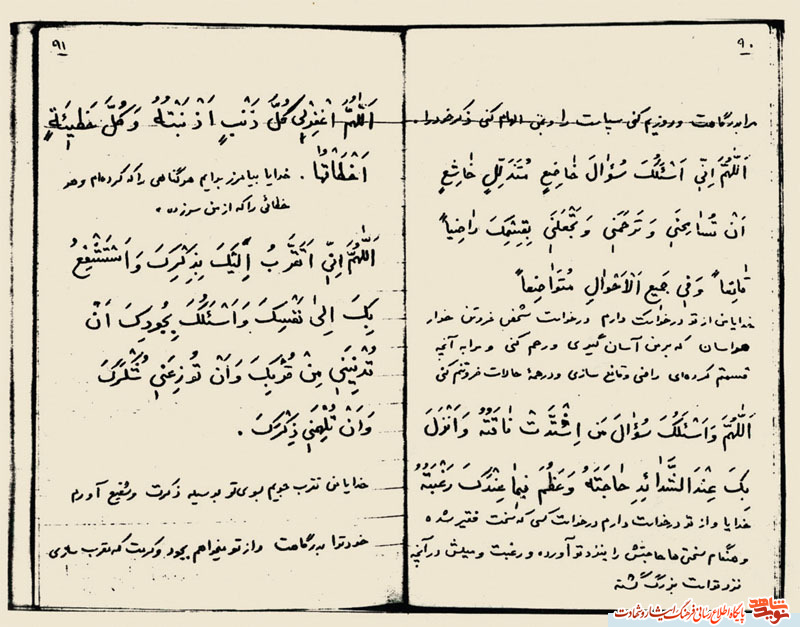 ۹۰
مرا بدرگاهت و روزیم کنی سپاست را و بمن الهام کنی ذکر خود را.
اَللّٰهُمَّ اِنّی اَسْئَلُکَ سُؤالَ خاضِعٍ مُتَذَلِّلٍ خاشِعٍ
اَنْ تُسامِحَنی وَ تَرْحَمَنی وَ تَجْعَلَنی بِقِسْمِکَ راضِیاً
قانِعاً وَ فی جَمیعِ الْاَحْوالِ مُتَواضِعاً
خدایا من از تو درخواست دارم درخواست شخص فروتن خوار
هراسان که بر من آسان گیری و رحم کنی و مرا به آنچه
قسمتم کرده‌ای راضی و قانع سازی و در همهٔ حالات فروتنم کنی
اَللّٰهُمَّ وَ اَسْئَلُکَ سُؤالَ مَنِ اشْتَدَّتْ فاقَتُهُ وَ اَنْزَلَ
بِکَ عِنْدَ الشَّدائِدِ حاجَتَهُ وَ عَظُمَ فیما عِنْدَکَ رَغْبَتُهُ
خدایا و از تو درخواست دارم درخواست کسی که سخت فقیر شده
و هنگام سختی‌ها حاجتش را بنزد تو آورده و رغبت و میلش در آنچه
نزد توست بزرگ گشته
۹۱
اَللّٰهُمَّ اغْفِرْلی کُلَّ ذَنْبٍ اَذْنَبْتُهُ وَ کُلَّ خَطیئَةٍ
اَخْطَأتُها . خدایا بیامرز برایم هر گناهی را که کرده‌ام و هر
خطائی را که از من سر زده .
اَللّٰهُمَّ اِنّی اَتَقَرَّبُ اِلَیْکَ بِذِکْرِکَ وَ اَسْتَشْفِعُ
بِکَ اِلیٰ نَفْسِکَ وَ اَسْئَلُکَ بِجُودِکَ اَنْ
تُدْنِیَنی مِنْ قُرْبِکَ وَ اَنْ تُوزِعَنی شُکْرَکَ
وَ اَنْ تُلْهِمَنی ذِکْرَکَ .
خدایا من تقرب جویم بسوی تو بوسیله ذکرت و شفیع آورم
خود تو را بدرگاهت و از تو میخواهم بجود و کرمت که تقرب سازی
نوید شاهد
پایگاه اطلاع رسانی فرهنگ ایثار و شهادت